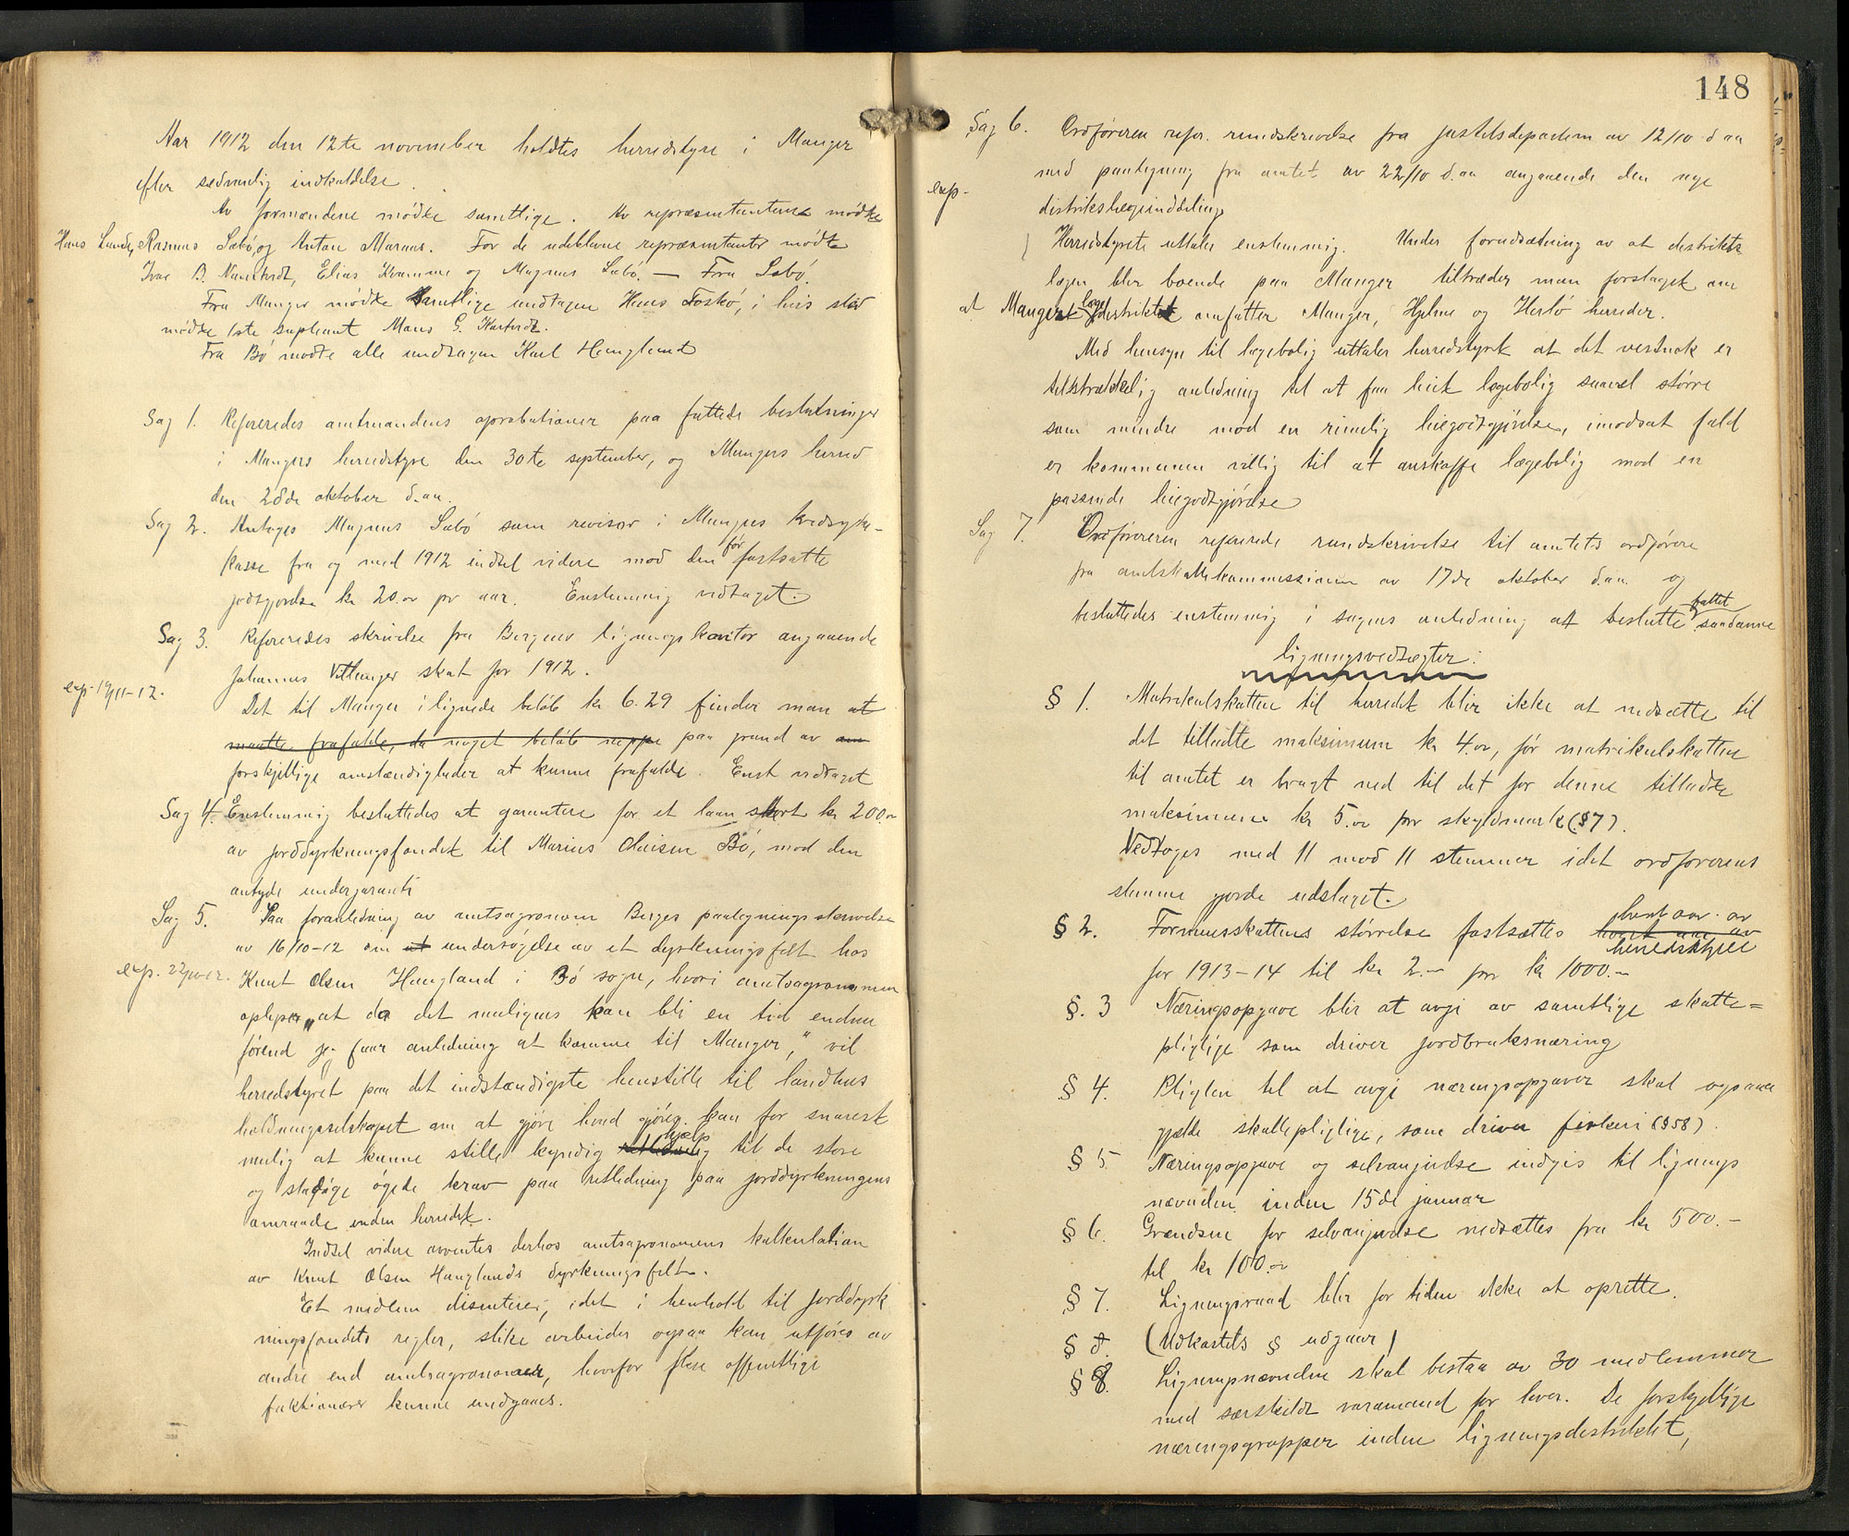 Aar 1912 den 12te november holdtes herredstyre i Manger
efter sedvanlig indkaldelse.
Av formændene mødte samtlige. Av repræsentantene mødte
Hans Lunde, Rasmus Sæbø, og Antan Marøas. For de udeblevne repræsentanter mødte
Ivar B. Elias Kvamme og Magnus Sæbø. — Fra Sæbø
Fra Manger mødte samtlige undtagen Hans Toskø, i hvis sted
mødte 1ste supleant Mons G.
Fra Bø mødte alle undtagen Karl Haugland
Sag 1. Refereredes amtmandens aprobationer paa fattede beslutninger
i Mangers herredstyre den 30te september, og Mangers herred
den 28de oktober d.aa.
Sag 2. Antages Magnus Sæbø som revisor i Mangers kredssyke-
kasse fra og med 1912 indtil videre mod den før fastsatte
godtgjørelse kr 20.00 pr aar. Enstemmig vedtaget.
Sag 3. Refereredes skrivelse fra Bergens ligningskontor angaaende
Johannes skat for 1912.
exp. 19/11-12.
Det til Manger ilignede beløb kr 6.29 finder man at
maatte frafalde, da noget beløb neppe paa grund av
forskjellige omstændigheder at kunne frafalde. Enst vedtaget
Sag 4. Enstemmig besluttedes at garantere for et laan stort kr 200.00
av jorddyrkningsfondet til Marius Olaisen Bø, mod den
antyde undergaranti
Sag 5. Paa foranledning av amtsagronom Berges paategningsskrivelse
av 16/10-12 om at undersøgelse av et dyrkningsfelt hos
exp.
Knut Olsen Haugland i Bø sogn, hvori amtsagronomen
oplyser „at da det muligens kan bli en tid endnu
førend jeg faar anledning at komme til Manger," vil
herredstyret paa det indstændigste henstille til landhus
holdningsselskapet om at gjøre hvad gjøres kan for snarest
mulig at kunne stille kyndig hjælp til de store
og stadige øgede krav paa veiledning paa jorddyrkningens
omraade inden herredet.
Indtil videre avventes derhos amtsagronomens kalkulation
av Knut Olsen Hauglands dyrkningsfelt.
Et medlem disenterer, idet i henhold til jorddyrk
ningsfondets regler, slike arbeider ogsaa kan utføres av
andre end amtsagronomer, hvorfor flere offentlige
funktionærer kunne undgaaes.
148
Sag 6. Ordføreren refer. rundskrivelse fra justitsdepartem av 12/10 d aa
med paategning fra amtet av 22/10 d.aa angaaende den nye
exp.
distriktslægeinddeling
Herredstyrete uttaler enstemmig. Under forudsætning av at distrikts
lægen blir boende paa Manger tiltræder man forslaget om
at Manger lægedistrikt omfatter Manger, Hjelme og Herlø herreder.
Med hensyn til lægebolig uttaler herredstyret at det vestnok er
tilstrækkelig anledning til at faa leiet lægebolig saavel større
som mindre mod en rimelig leiegodtgjørelse, imodsat fald
er kommunen villig til at anskaffe lægebolig mod en
passende leiegodtgjørelse
Sag 7. Ordføreren refererede rundskrivelse til amtets ordførere
fra amtskattekommissionen av 17de oktober d.aa. og
besluttedes enstemmig i sagens anledning at beslutte fattet saadanne
ligningsvedtægter:
§ 1. Matrikulskatten til herredet blir ikke at nedsætte til
det tilladte maksimum kr 4.00, før matrikulskatten
til amtet er bragt ned til det for denne tilladte
maksimum kr 5.00 pr skyldmark (§7).
Vedtoges med 11 mod 11 stemmer idet ordførerens
stemme gjorde udslaget.
§ 2. Formuesskattens størrelse fastsættes hvert aar av
herredstyret
for 1913-14 til kr 2.— pr kr 1000.—
§. 3 Næringsopgave blir at avgi av samtlige skatte=
pligtige som driver jordbruksnæring
§ 4. Pligten til at avgi næringsopgaver skal ogsaa
gjælde skattepligtige, som driver fiskeri (§58).
§ 5. Næringsopgave og selvangivelse indgis til lignings
nævnden inden 15de januar
§ 6. Grændsen for selvangivelse nedsættes fra kr 500.—
til kr 100.00
§ 7. Ligningsraad blir for tiden ikke at oprette.
§ 8. (Udkastets § udgaar)
§ 8. Ligningsnævnden skal bestaa av 30 medlemmer
med særskildt varamand for hver. De forskjellige
næringsgrupper inden ligningsdistriktet,